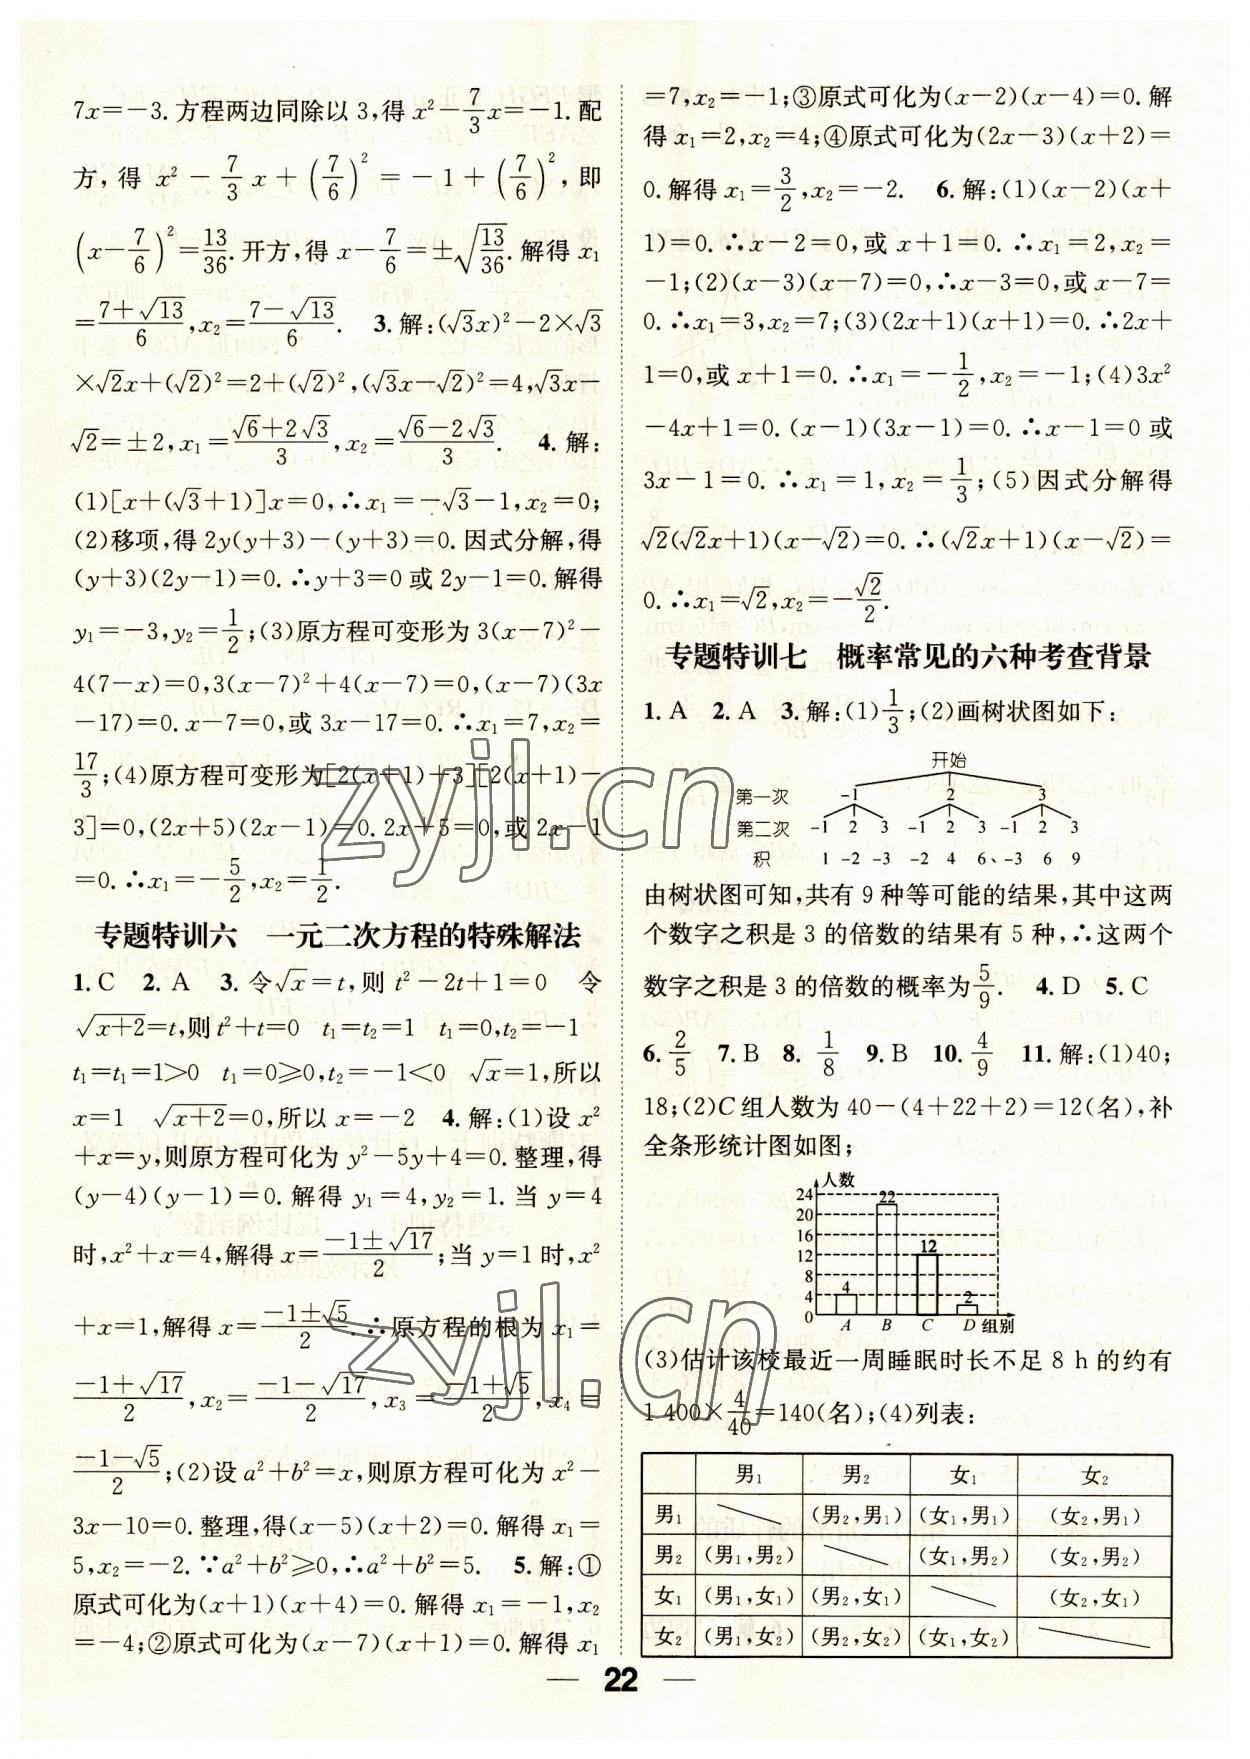 7x=-3.方程两边同除以3,得x²-7/3x=-1.配
方,得 x²-7/3x+(7/6)²=-1+(7/6)²,即
(x-7/6)²=13/36.开方,得x-7/6=±√(13/36).解得x₁
=(7+√13)/6,x₂=(7-√13)/6. 3.解:(√3x)²-2×√3
×√2x+(√2)²=2+(√2)²,(√3x-√2)²=4,√3x-
√2=±2,x₁=(√6+2√3)/3,x₂=(√6-2√3)/3. 4.解:
(1)[x+(√3+1)]x=0,∴x₁=-√3-1,x₂=0;
(2)移项,得2y(y+3)-(y+3)=0.因式分解,得
(y+3)(2y-1)=0.∴y+3=0或2y-1=0.解得
y₁=-3,y₂=1/2;(3)原方程可变形为3(x-7)²-
4(7-x)=0,3(x-7)²+4(x-7)=0,(x-7)(3x
-17)=0.x-7=0,或3x-17=0.∴x₁=7,x₂=
17/3;(4)原方程可变形为[2(x+1)+3][2(x+1)-
3]=0,(2x+5)(2x-1)=0.2x+5=0,或2x-1
=0.∴x₁=-5/2,x₂=1/2.
专题特训六 一元二次方程的特殊解法
1.C 2.A 3.令√x=t,则t²-2t+1=0 令
√(x+2)=t,则t²+t=0 t₁=t₂=1 t₁=0,t₂=-1
t₁=t₁=1>0 t₁=0≥0,t₂=-1<0 √x=1,所以
x=1 √(x+2)=0,所以x=-2 4.解:(1)设x²
+x=y,则原方程可化为y²-5y+4=0.整理,得
(y-4)(y-1)=0.解得y₁=4,y₂=1.当y=4
时,x²+x=4,解得x=(-1±√17)/2;当y=1时,x²
+x=1,解得x=(-1±√5)/2.∴原方程的根为x₁=
(-1+√17)/2,x₂=(-1-√17)/2,x₃=(-1+√5)/2,x₄=
(-1-√5)/2;(2)设a²+b²=x,则原方程可化为x²-
3x-10=0.整理,得(x-5)(x+2)=0.解得x₁=
5,x₂=-2.∵a²+b²≥0,∴a²+b²=5. 5.解:①
原式可化为(x+1)(x+4)=0.解得x₁=-1,x₂
=-4;②原式可化为(x-7)(x+1)=0.解得x₁
=7,x₂=-1;③原式可化为(x-2)(x-4)=0.解
得x₁=2,x₂=4;④原式可化为(2x-3)(x+2)=
0.解得x₁=3/2,x₂=-2. 6.解:(1)(x-2)(x+
1)=0.∴x-2=0,或x+1=0.∴x₁=2,x₂=
-1;(2)(x-3)(x-7)=0,∴x-3=0,或x-7=
0.∴x₁=3,x₂=7;(3)(2x+1)(x+1)=0.∴2x+
1=0,或x+1=0.∴x₁=-1/2,x₂=-1;(4)3x²
-4x+1=0.(x-1)(3x-1)=0.∴x-1=0或
3x-1=0.∴x₁=1,x₂=1/3;(5)因式分解得
√2(√2x+1)(x-√2)=0.∴(√2x+1)(x-√2)=
0.∴x₁=√2,x₂=-√2/2.
专题特训七 概率常见的六种考查背景
1.A 2.A 3.解:(1)1/3;(2)画树状图如下:
开始
第一次 -1 2 3
第二次 -1 2 3 -1 2 3 -1 2 3
积 1 -2 -3 -2 4 6、-3 6 9
由树状图可知,共有9种等可能的结果,其中这两
个数字之积是3的倍数的结果有5种,∴这两个
数字之积是3的倍数的概率为5/9. 4.D 5.C
6.2/5 7.B 8.1/8 9.B 10.4/9 11.解:(1)40;
18;(2)C组人数为40-(4+22+2)=12(名),补
全条形统计图如图;
人数
24 22
20
16
12 12
8
4 4 2
0 A B C D 组别
(3)估计该校最近一周睡眠时长不足8 h的约有
1 400×4/40=140(名);(4)列表:
男₁ 男₂ 女₁ 女₂
男₁ (男₂,男₁) (女₁,男₁) (女₂,男₁)
男₂ (男₁,男₂) (女₁,男₂) (女₂,男₂)
女₁ (男₁,女₁) (男₂,女₁) (女₂,女₁)
女₂ (男₁,女₂) (男₂,女₂) (女₁,女₂)
— 22 —
zyjl.cn
zyjl.cn